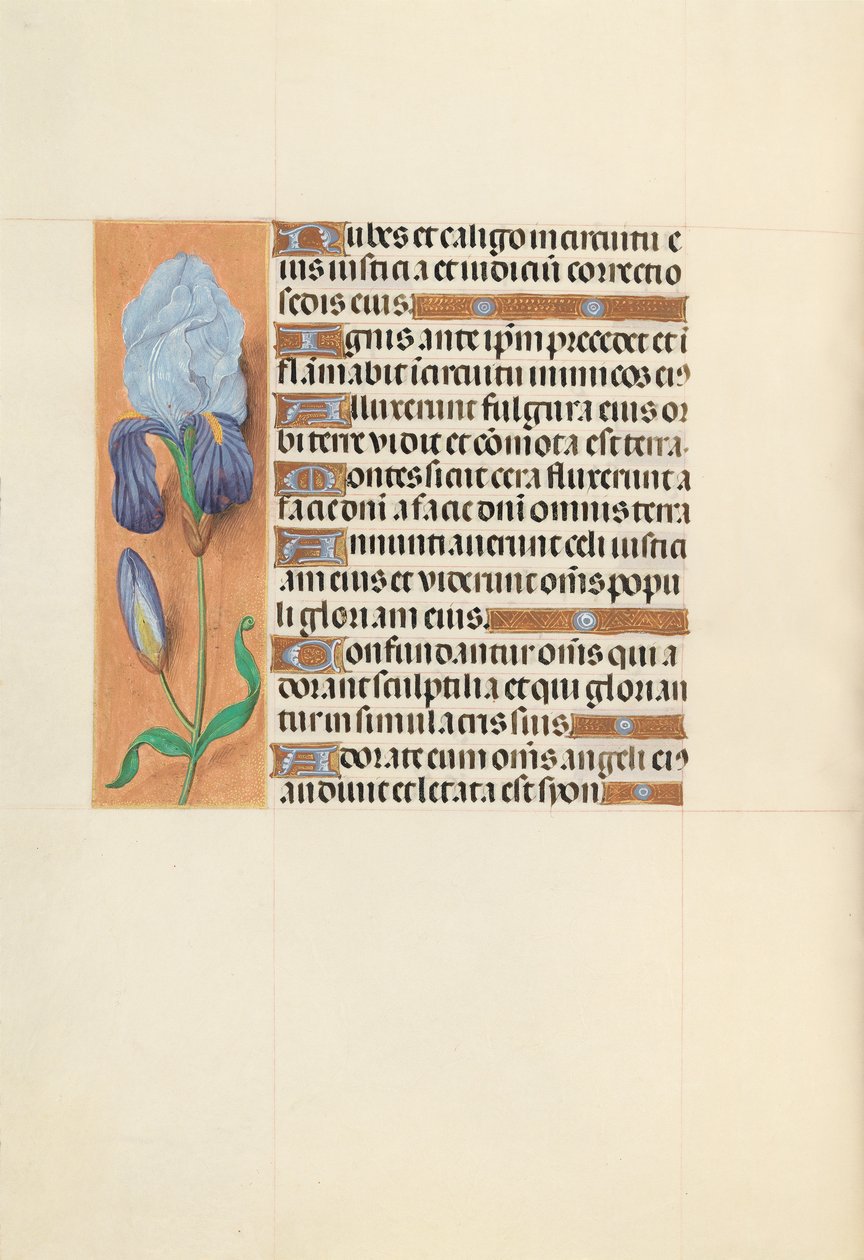 Nubes et caligo in circuitu e
ius iusticia et iudiciū correctio
sedis eius.
Ignis ante ip̄m precedet et i
flāmabit ī circuitu inimicos eiꝰ
Alluxerunt fulgura eius or
bi terre vidit et cōmota est terra.
Montes sicut cera fluxerunt a
facie dn̄i a facie dn̄i omnis terra
Annuntiauerunt celi iustici
am eius et viderunt om̄s popu
li gloriam eius.
Confundantur om̄s qui a
dorant sculptilia et qui glorian
tur in simulacris suis
Adorate eum om̄s angeli eiꝰ
audiuit et letata est syon